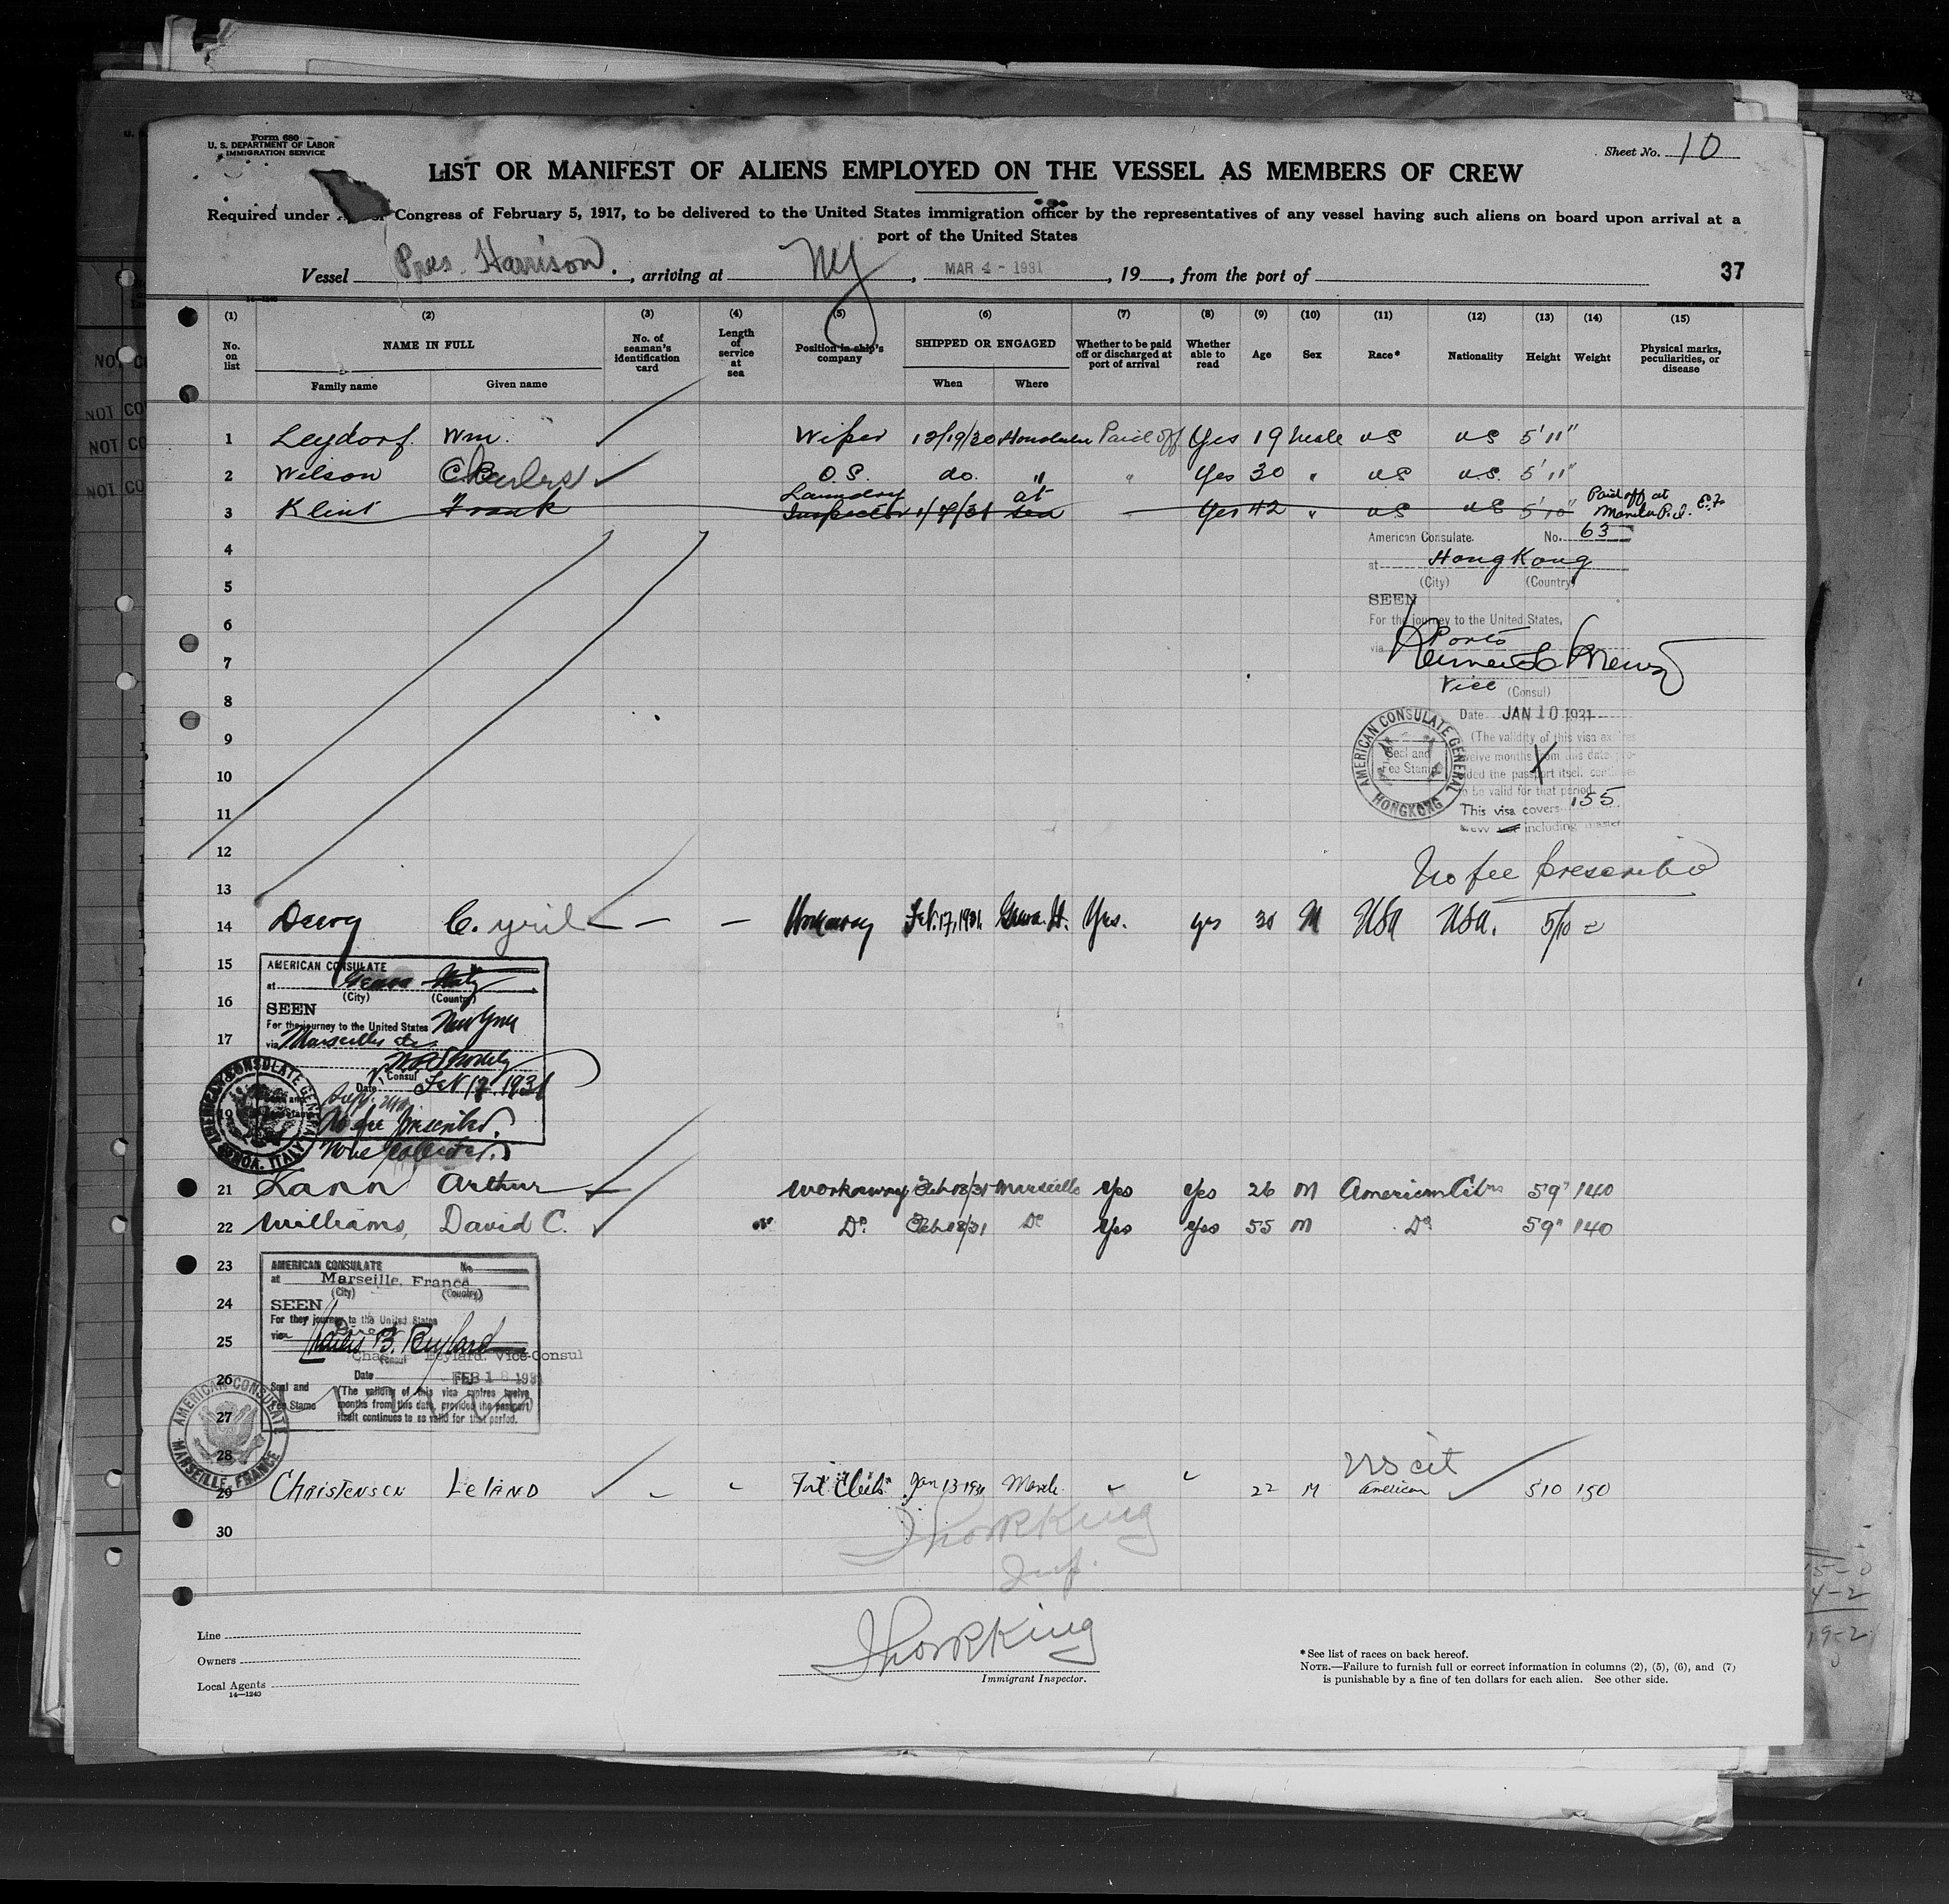 Form 680
U. S. DEPARTMENT OF LABOR
IMMIGRATION SERVICE
Sheet No. 10
LIST OR MANIFEST OF ALIENS EMPLOYED ON THE VESSEL AS MEMBERS OF CREW
Required under of Congress of February 5, 1917, to be delivered to the United States immigration officer by the representatives of any vessel having such aliens on board upon arrival at a
port of the United States
Vessel Pres. Harrison, arriving at NY, MAR 4 - 1931, 19 , from the port of 37
(1) (2) (3) (4) (5) (6) (7) (8) (9) (10) (11) (12) (13) (14) (15)
No. on list NAME IN FULL Family name Given name No. of seaman's identification card Length of service at sea Position in ship's company SHIPPED OR ENGAGED When Where Whether to be paid off or discharged at port of arrival Whether able to read Age Sex Race* Nationality Height Weight Physical marks, peculiarities, or disease
1 Leydorf Wm. Wiper 12/19/30 Honolulu Paid off Yes 19 Male US US 5'11"
2 Wilson Charles O.S. do. " " Yes 30 " US U.S. 5'11"
3 Klint Frank Laundry Inspector at Sea Yes 42 " US US 5'10" Paid off at Manila P.I.
4
American Consulate. No. 63
at Hong Kong
5
(City) (Country)
SEEN
6
For the journey to the United States,
via Ports
7
Vice (Consul)
8
Date JAN 10 1931
9
(The validity of this visa expires
twelve months from this date
10
the passport itself
to be valid for that period
11
This visa covers 155
including master
AMERICAN CONSULATE GENERAL
HONGKONG
Seal and
Fee Stamp
12
No fee prescribed
13
14 Dewy C. yril — — Workaway Feb. 17, 1931. Yes. yes 30 M USA USA. 5/10
15
AMERICAN CONSULATE
at Genoa Italy
(City) (Country)
16
SEEN
For the journey to the United States New York
17
via Marseilles
Consul
Date Feb 17 1931
19
No fee prescribed.
None collected.
AMERICAN CONSULATE GENERAL
GENOA. ITALY
21 Arthur Workaway Feb 18/31 Marseille Yes Yes 26 M American 59" 140
22 Williams, David C. Do Feb 18/31 Do Yes Yes 55 M Do 59" 140
23
AMERICAN CONSULATE No
at Marseille, France
(City) (Country)
24
SEEN
For they journey to the United States
via Direct
25
Vice-Consul
Consul
Date FEB 18 1931
26
Seal and
Fee Stamp
(The validity of this visa expires twelve
months from this date, provided the passport)
27
itself continues to be valid for that period.
AMERICAN CONSULATE
MARSEILLE, FRANCE
28
US cit
29 Christensen Leland Jan 13 1931 22 M American 510 150
30
Line
Owners
Local Agents
14—1240
Immigrant Inspector.
* See list of races on back hereof.
NOTE.—Failure to furnish full or correct information in columns (2), (5), (6), and (7)
is punishable by a fine of ten dollars for each alien. See other side.